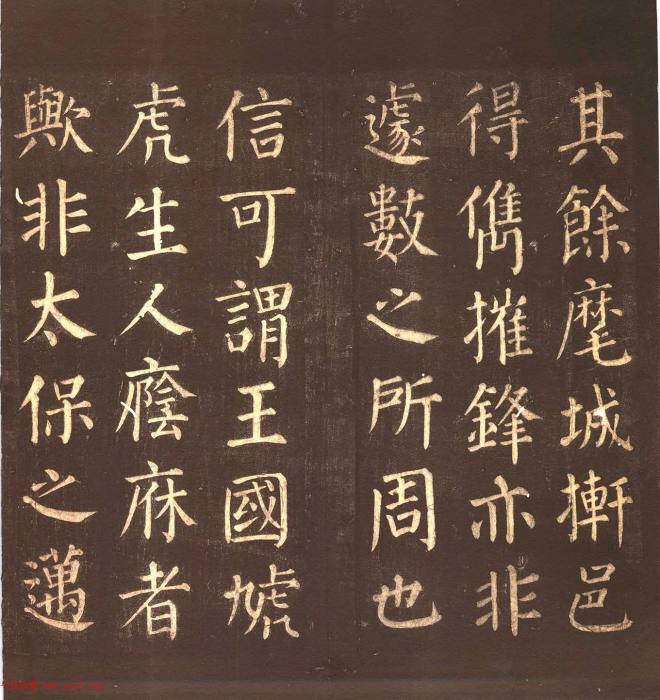 其餘麾城𢳚邑
得儁摧鋒亦非
遽數之所周也
信可謂王國虓
虎生人癊庥者
歟非太保之邁